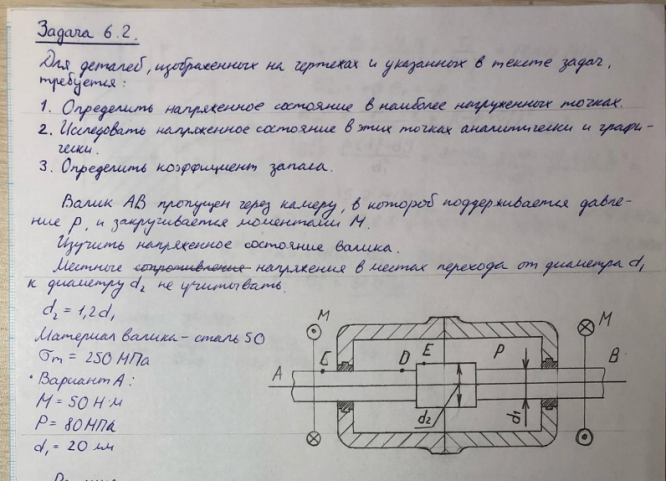 Задача 6.2.
Для деталей, изображенных на чертежах и указанных в тексте задач,
требуется:
1. Определить напряженное состояние в наиболее нагруженных точках.
2. Исследовать напряженное состояние в этих точках аналитически и графи-
чески.
3. Определить коэффициент запаса.
Валик АВ пропущен через камеру, в которой поддерживается давле-
ние р, и закручивается моментами М.
Изучить напряженное состояние валика.
Местные сопротивления напряжения в местах перехода от диаметра d₁
к диаметру d₂ не учитывать.
d₂ = 1,2d₁
Материал валика – сталь 50
σт = 250 МПа
Вариант А:
М = 50 Н·м
Р = 80 МПа
d₁ = 20 мм
M
C
D
E
P
M
A
B
d₂
d₁